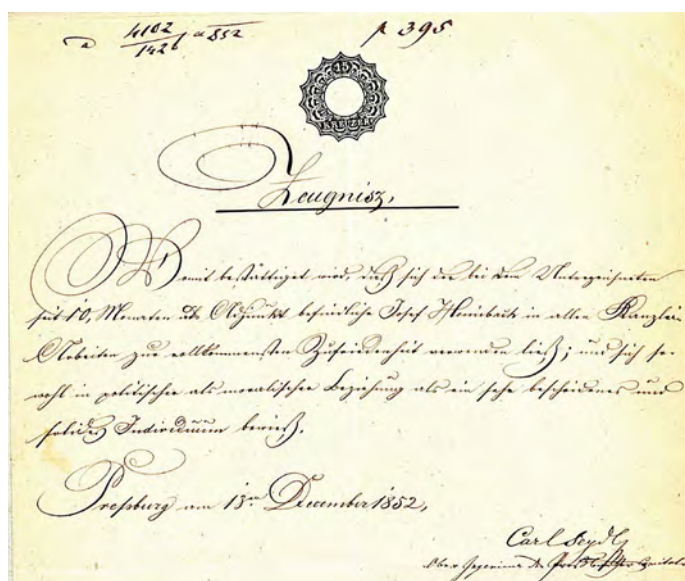 4102
142 852
p 395
15
KREUZER
Zeugnisz,
Womit bestättiget wird, daß sich der bei dem Unterzeichneten
seit 10, Monaten als Adjunkt befindliche Josef in allen Kanzlei
Arbeiten zur vollkommensten Zufriedenheit verwenden ließ; und sich so-
wohl in politischer als moralischer Beziehung als ein sehr bescheidenes und
solides Individuum bewieß.
Preßburg am 13ten December 1852,
Carl Seydl
Ober